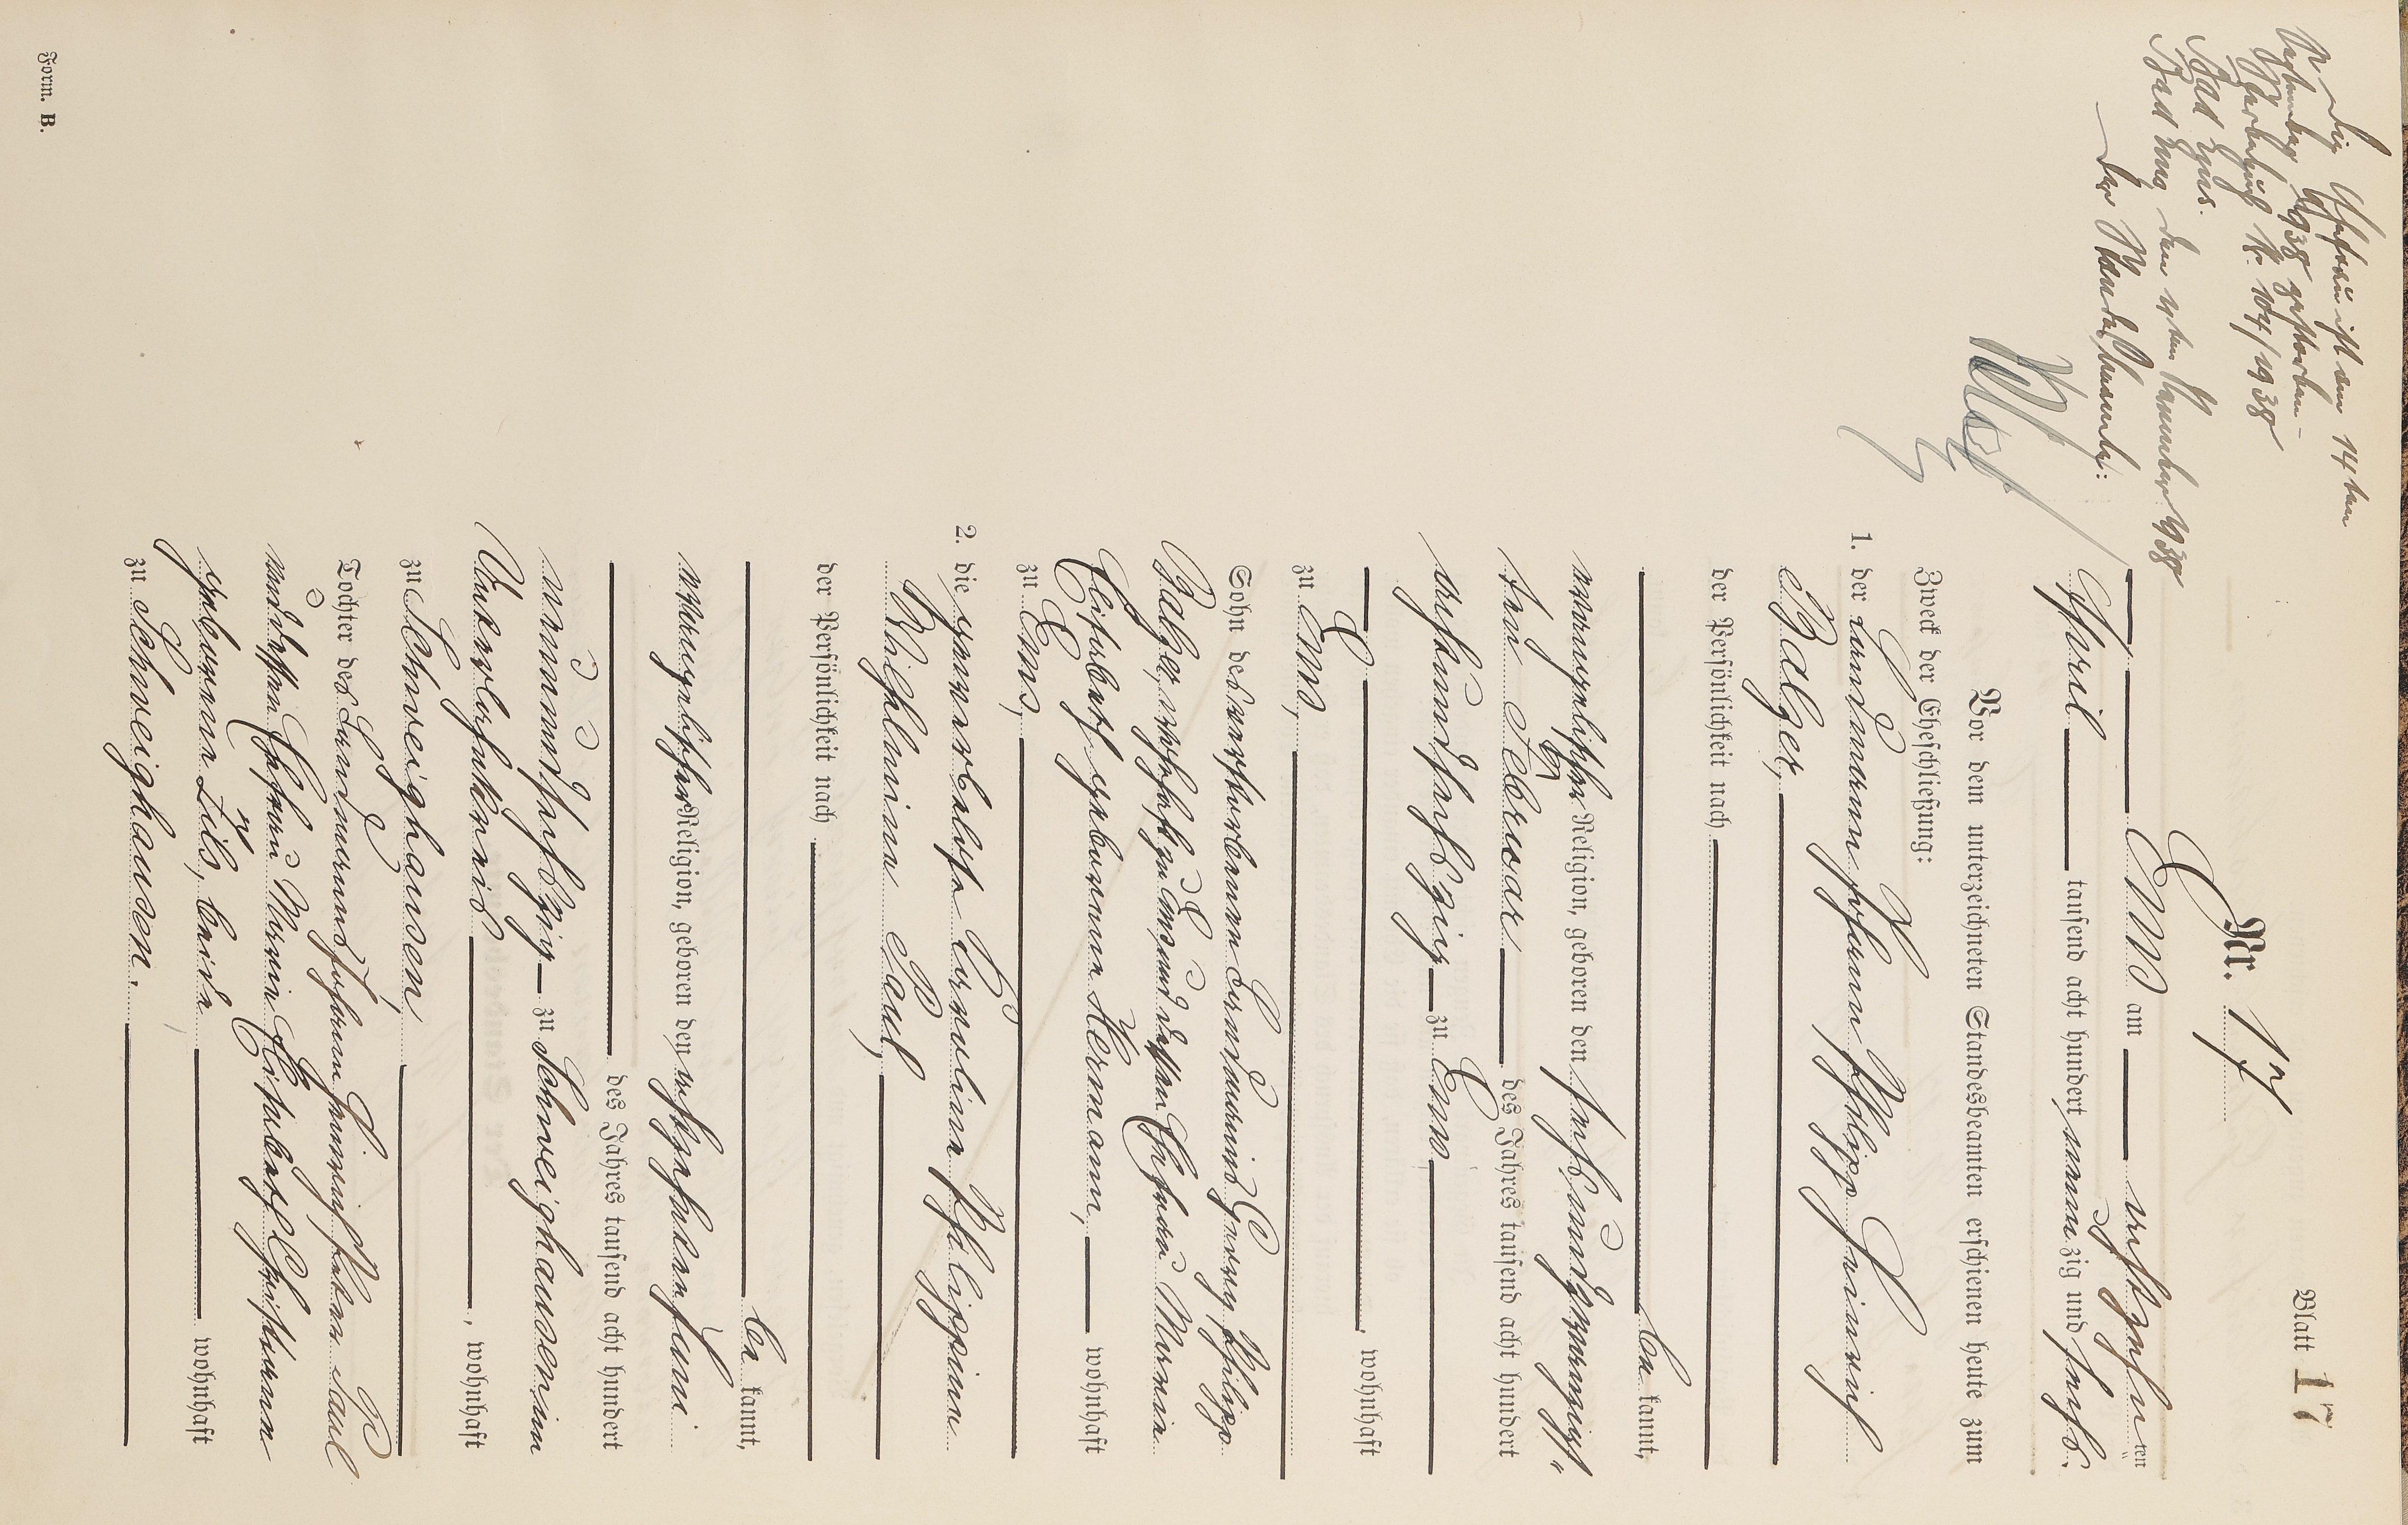 Blatt 17
Nr. 17
Ems am achtzehn ten
April tausend acht hundert neunzig und sechs.
Vor dem unterzeichneten Standesbeamten erschienen heute zum
Zweck der Eheschließung:
1. der Landmann Johann Philipp Heinrich
Balzer,
der Persönlichkeit nach
be kannt,
evangelischer Religion, geboren den sechsundzwanzig-
sten Februar des Jahres tausend acht hundert
achtundsechszig zu Ems
, wohnhaft
zu Ems,
Sohn des verstorbenen Landmanns Georg Philipp
Balzer, wohnhaft zu Ems und dessen Ehefrau Maria
Elisabeth geborene Hermann, wohnhaft
zu Ems,
2. die gewerbelose Karoline Philippine
Wilhelmine Paul,
der Persönlichkeit nach
be kannt,
evangelischer Religion, geboren den achtzehnten Juni
des Jahres tausend acht hundert
neunundsechszig zu Schweighausen im
Unterlahnkreis, wohnhaft
zu Schweighausen,
Tochter des Landmanns Johann Heinrich Paul
und dessen Ehefrau Maria Elisabeth Christiane
geborene Zils, beide wohnhaft
zu Schweighausen.
Die Ehefrau ist am 14ten
1938 gestorben
Sterbebuch Nr. 104/1938
Bad Ems.
Bad Ems, den November 1938
Der Standesbeamte:
Form. B.